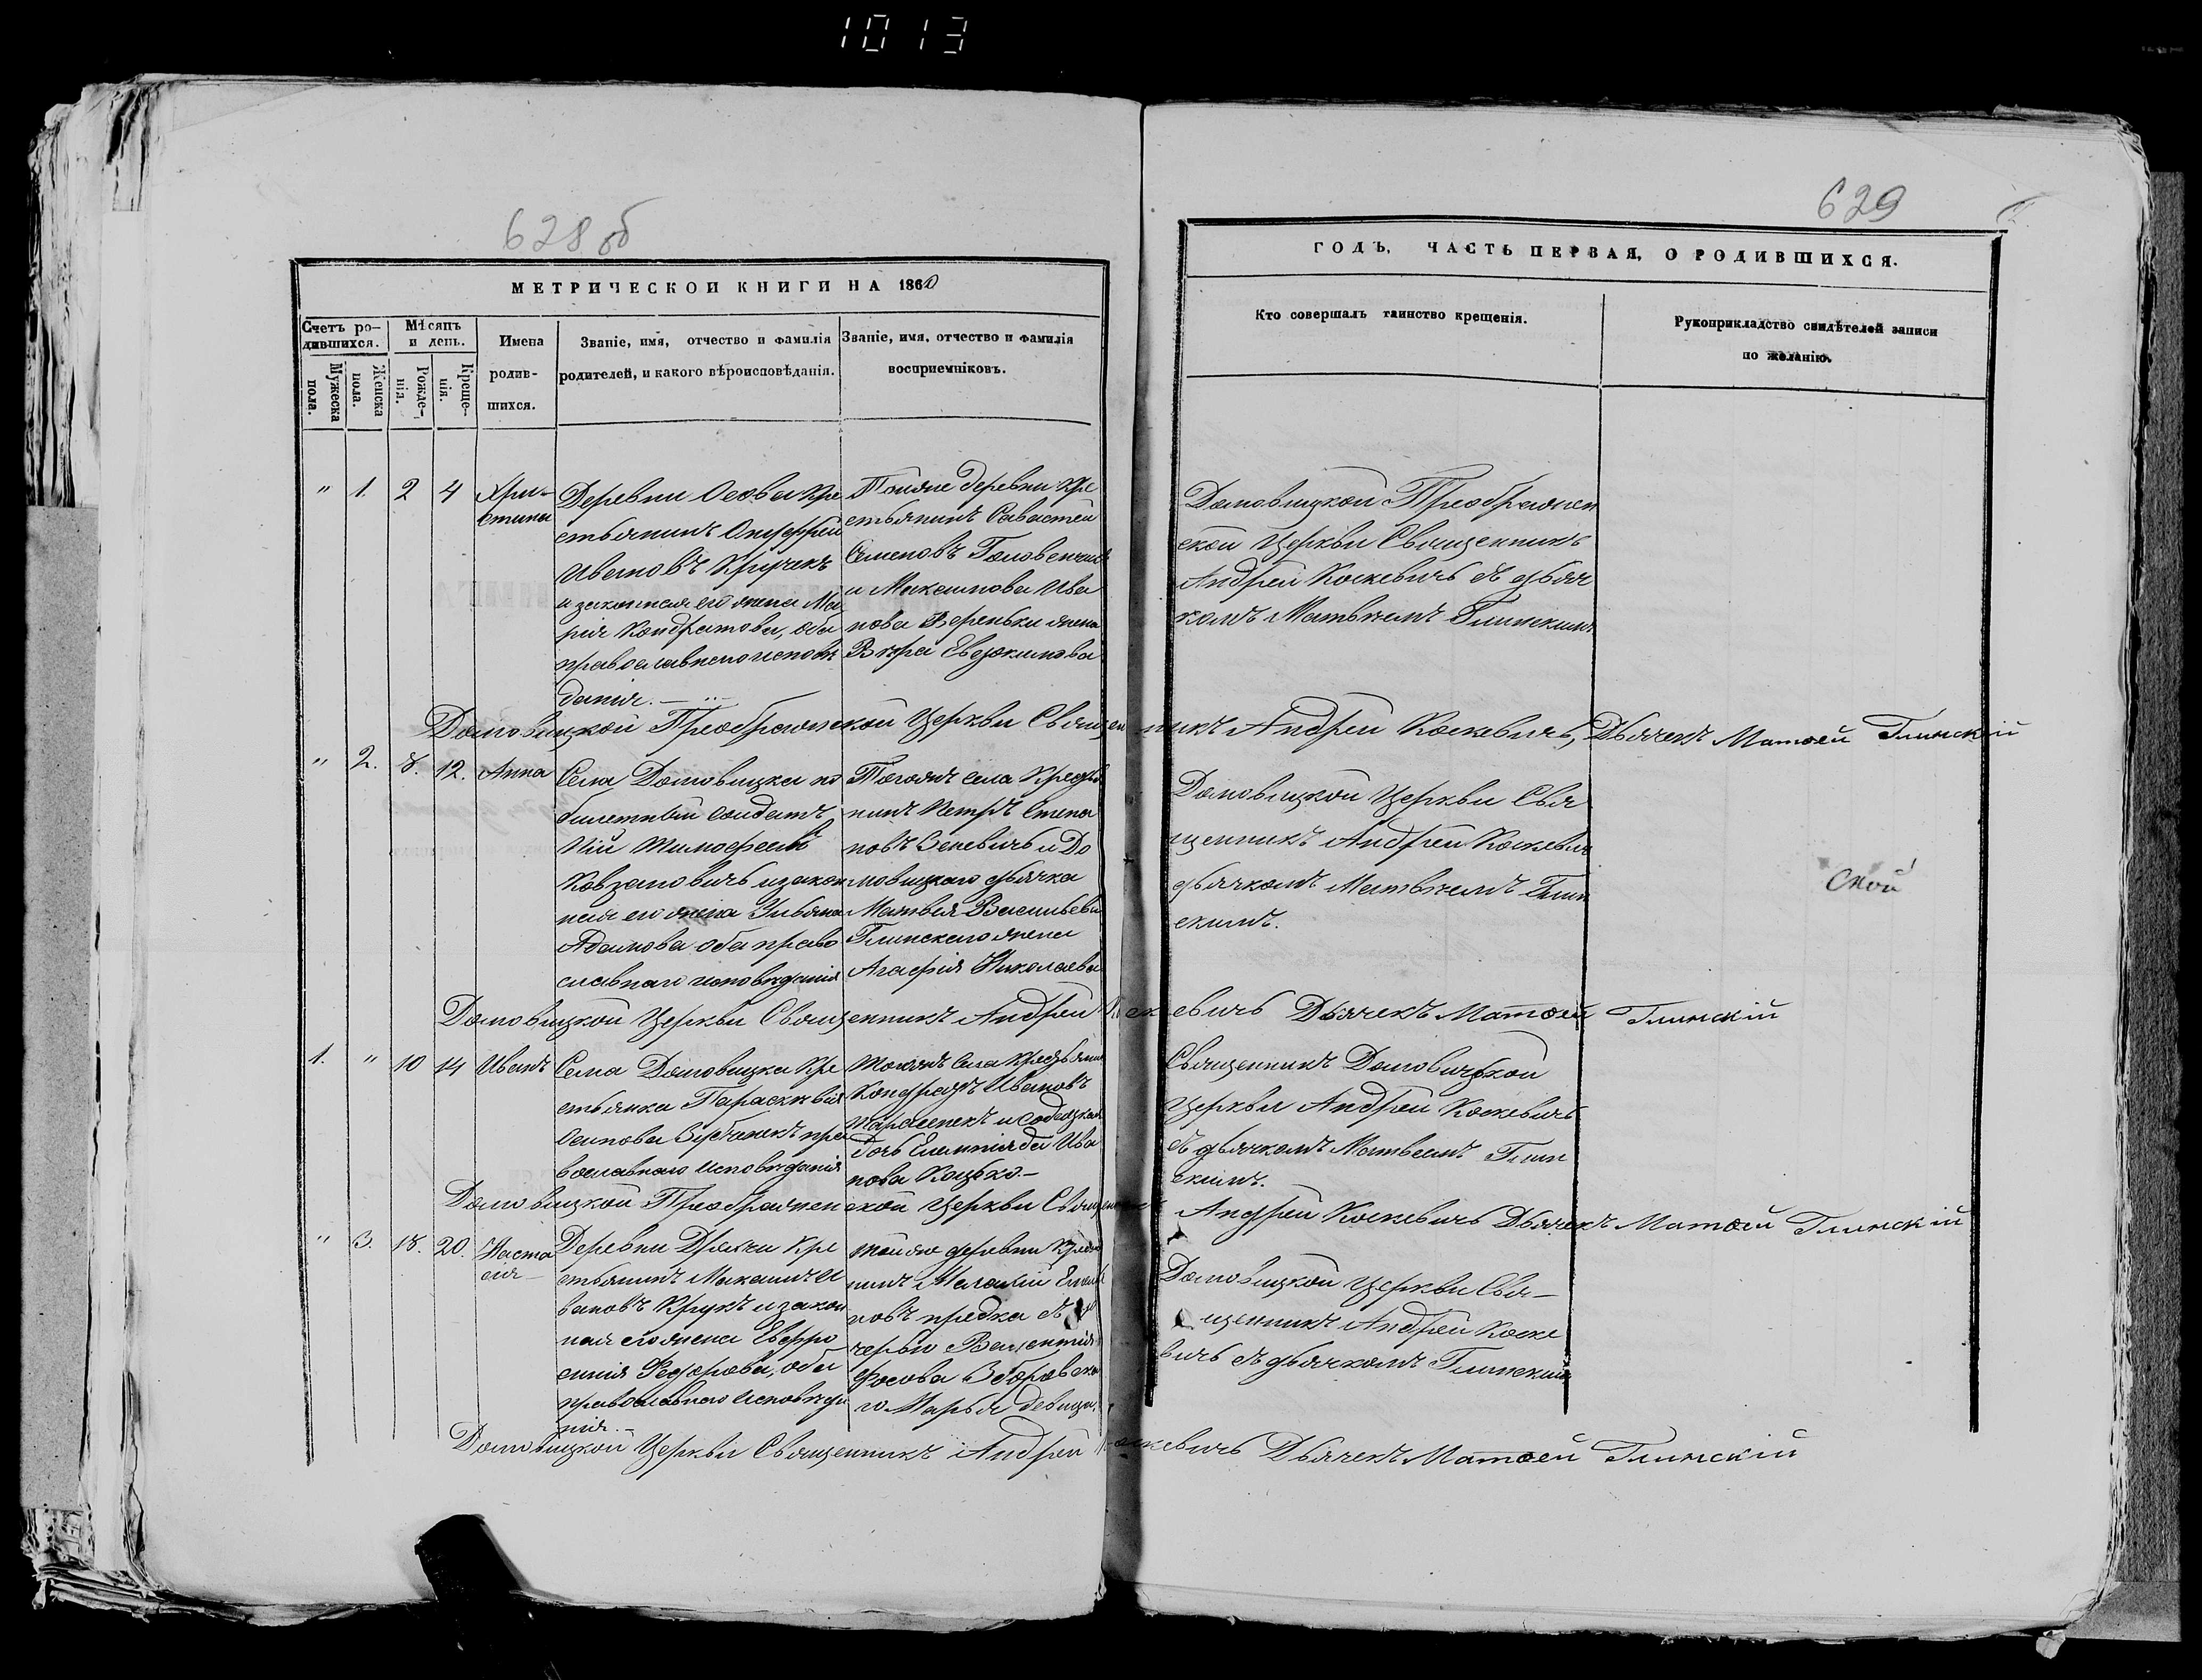 1013
628 об
629
МЕТРИЧЕСКОЙ КНИГИ НА 1860
ГОДЪ, ЧАСТЬ ПЕРВАЯ, О РОДИВШИХСЯ.
Счетъ ро-
дившихся.
Мужеска
пола.
Женска
пола.
Мѣсяцъ
и день.
Рожде-
нія.
Креще-
нія.
Имена
родив-
шихся.
Званіе, имя, отчество и фамилія
родителей, и какого вѣроисповѣданія.
Званіе, имя, отчество и фамилія
восприемніковъ.
Кто совершалъ таинство крещенія.
Рукоприкладство свидѣтелей записи
по желанію.
" 1. 2 4
Хри-
стина
Деревни Осовы Кре
стьянинъ Онуфрій
Ивановъ Кручекъ
и законная его жена Ма
рія Кондратова, оба
православнаго исповѣ
данія. —
Тойже деревни Кре
стьянинъ Савастей
Семеновъ
и Максимова Ива
нова Вереньки жена
Вѣра Евдокимова
Домовицкой Преображен
ской Церкви Священникъ
Андрей Коскевичъ съ дьяч
комъ Матвѣемъ Глинскимъ
Домовицкой Преображенской Церкви Священникъ Андрей Коскевичъ, Дьячекъ Матѳей Глинскій
" 2. 8. 12. Анна
Села Домовицка
билетный солдатъ
Тимофеевъ
Ковзановичъ и закон
ная его жена Ульяна
Адамова оба право
славнаго исповѣданія
Тогожъ села Крестья
нинъ Петръ Степа
новъ Зеневичъ и До
мовицкаго дьячка
Матвѣя Васильева
Глинскаго жена
Агафія Николаева
Домовицкой Церкви Свя
щенникъ Андрей Коскевичъ
дьячкомъ Матвѣемъ Глин
скимъ.
ской
Домовицкой Церкви Священникъ Андрей Коскевичъ Дьячекъ Матѳей Глинскій
1. " 10 14 Иванъ
Села Домовицка Кре
стьянка Параскѣвія
Осипова пра
вославнаго исповѣданія
Тогожъ Села Крестьянинъ
Кондратъ Ивановъ
и
дочь Ива
нова Коцько. —
Священникъ Домовицкой
Церкви Андрей Коскевичъ
съ дьячкомъ Матвеемъ Глин
скимъ.
Домовицкой Преображенской Церкви Священникъ Андрей Коскевичъ Дьячекъ Матѳей Глинскій
" 3. 18. 20.
Наста
сія
Деревни Дрячи Кре
стьянинъ Максимъ И
вановъ Крукъ и закон
ная его жена Евфро
синія Федорова, оба
православнаго исповѣда
нія. —
Тойже деревни Крестья
нинъ
новъ
Марья девица.
Домовицкой Церкви Свя—
щенникъ Андрей Коске
вичъ съ дьячкомъ Глинскимъ
Домовицкой Церкви Священникъ Андрей Коскевичъ Дьячекъ Матѳей Глинскій